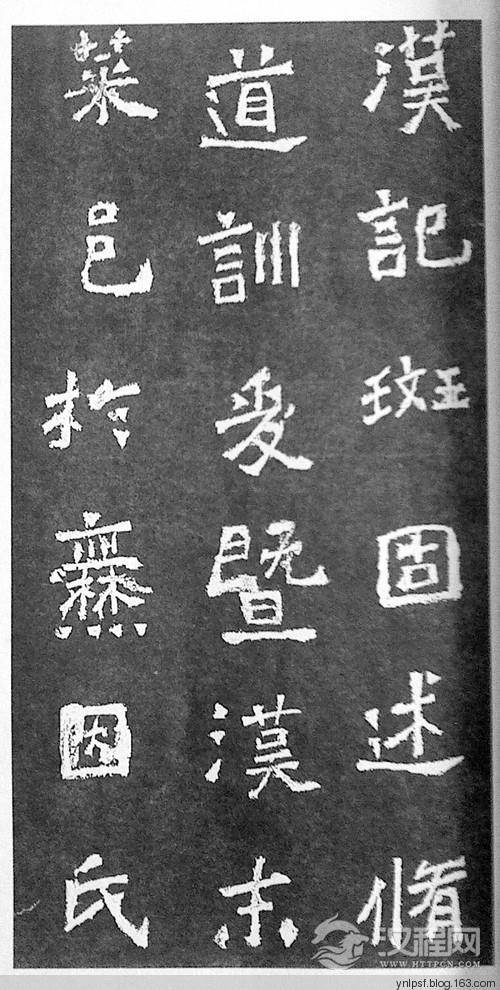 漢記班固述脩
道訓爰暨漢末
菜邑於爨因氏
汉程网
HTTPCN.COM
ynlpsf.blog.163.com